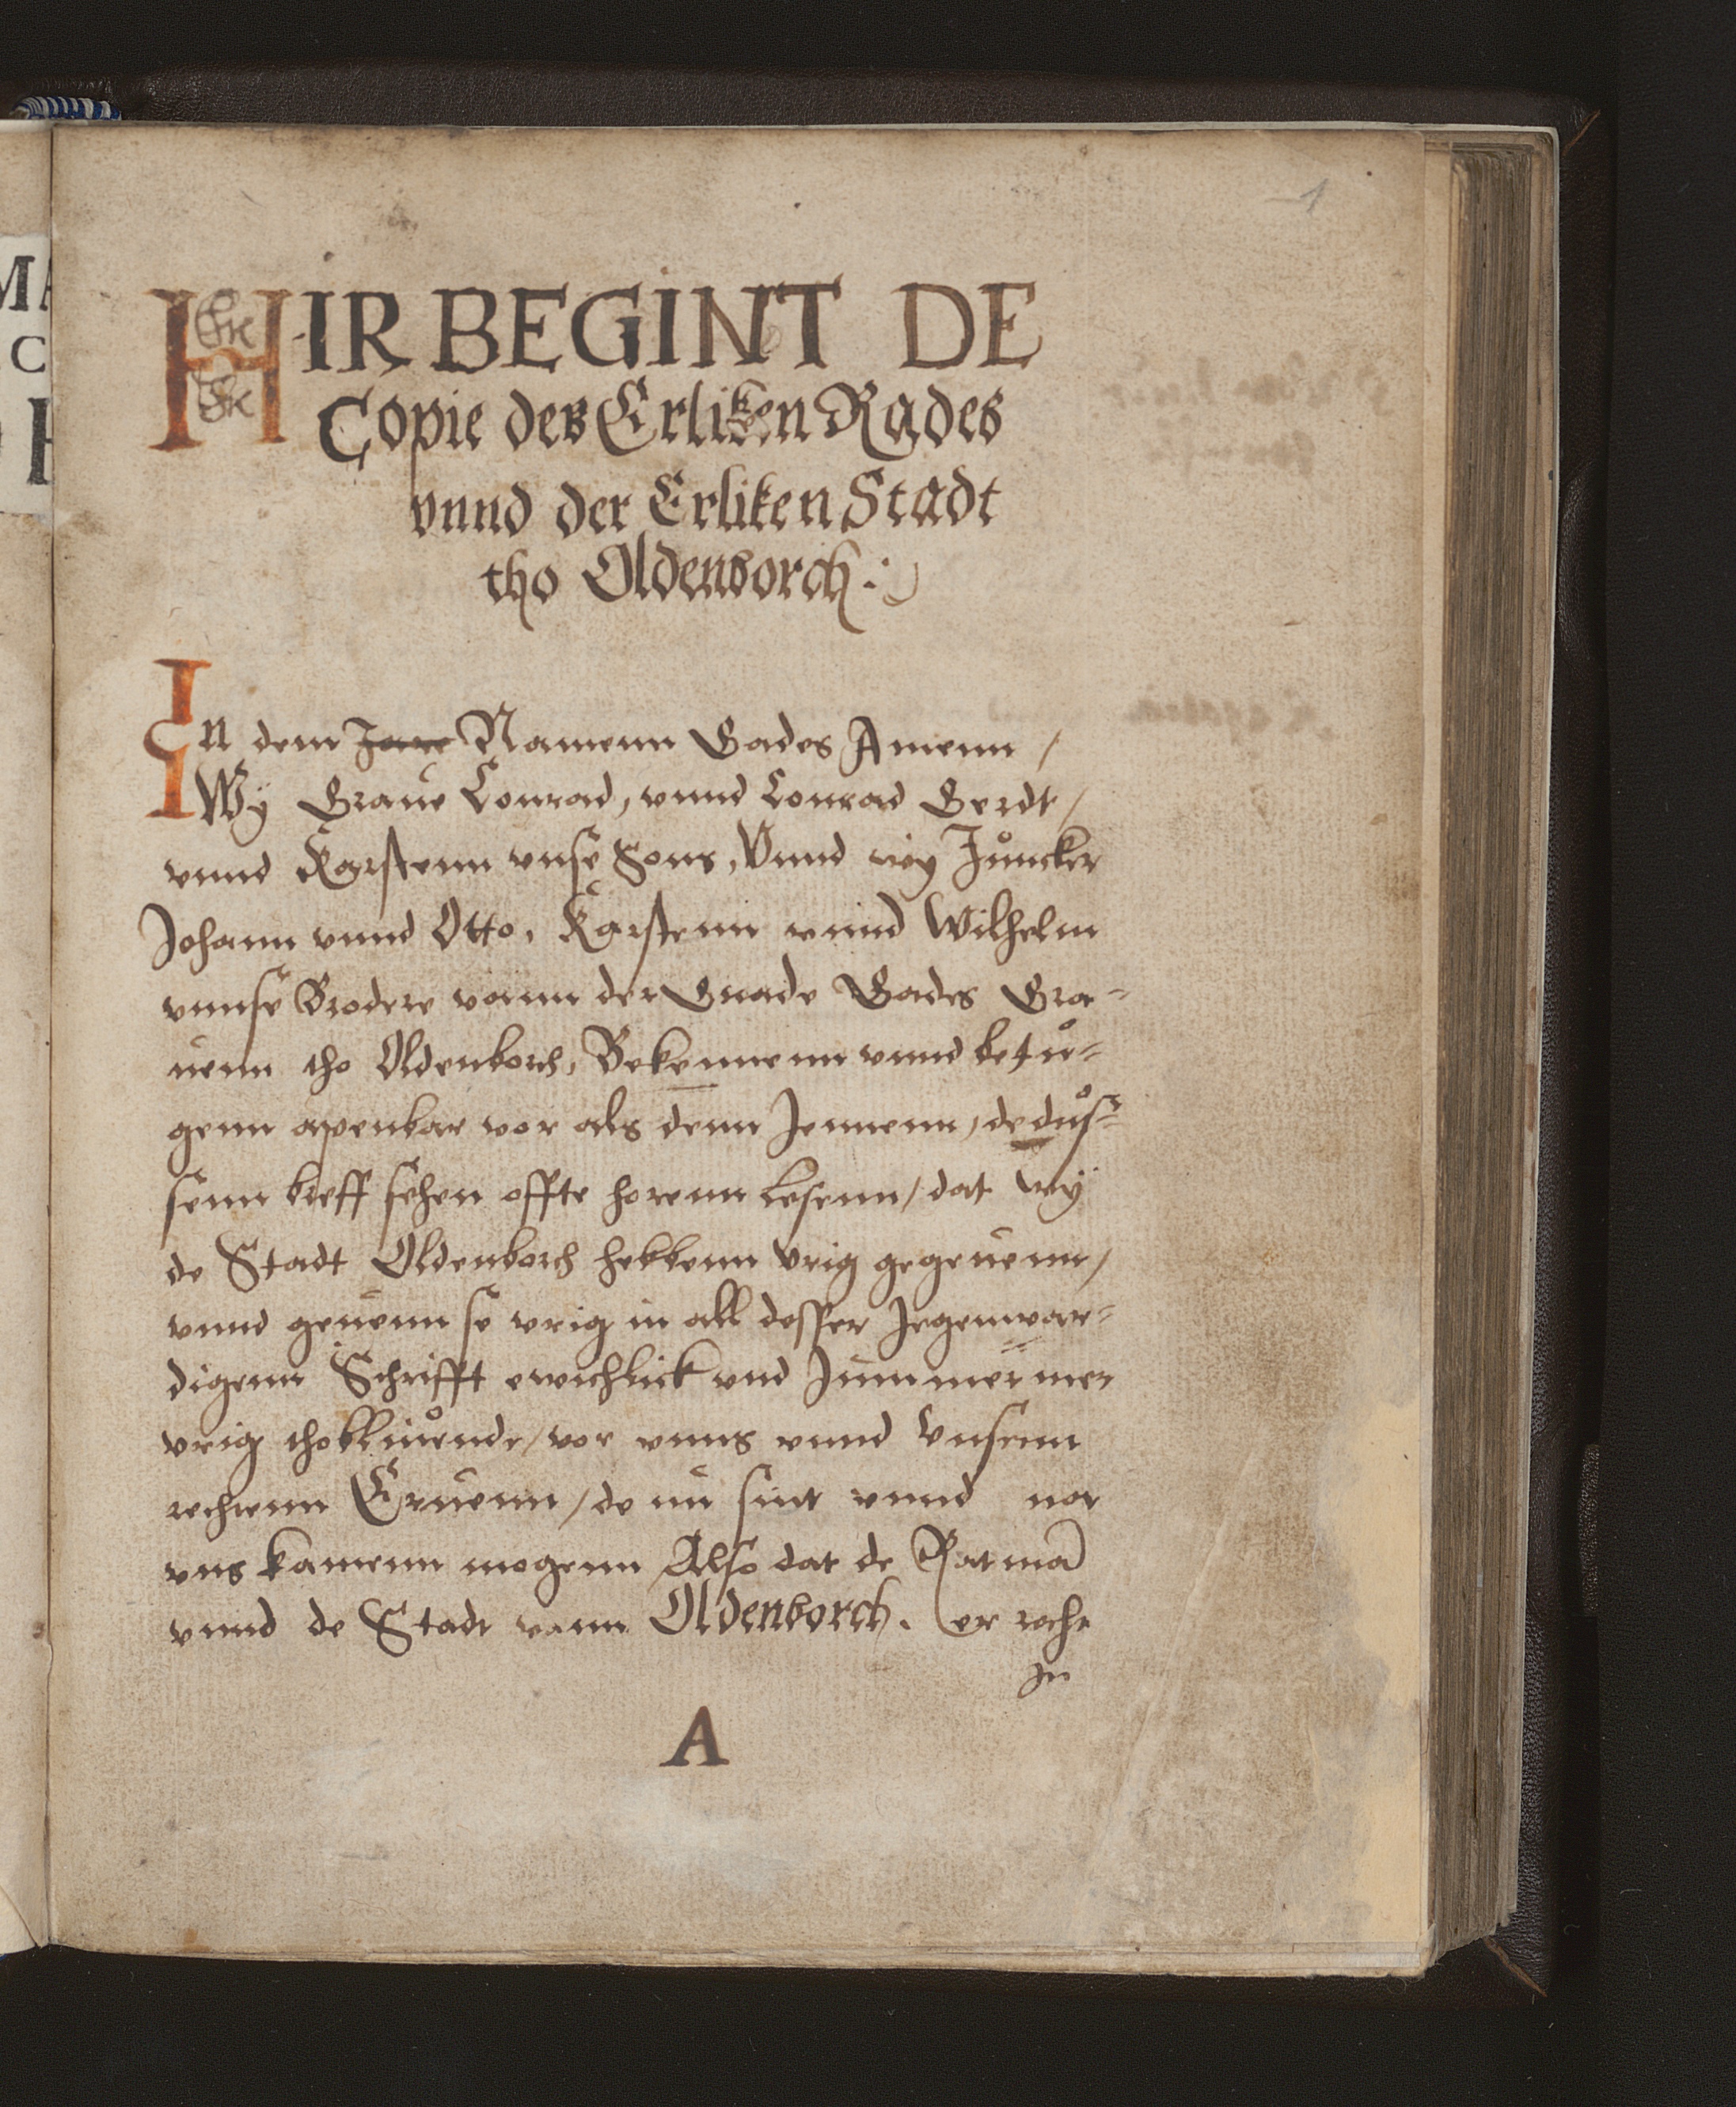 1
HIR BEGINT DE
Copie des Erliken Rades
vnnd der Erliken Stadt
tho Oldenborch :
In dem Jare Namenn Gades Amenn /
Wÿ Graue Conrad, vnnd Conrad Gerdt /
vnnd Karstenn vnse Sons, Vnnd wy Juncker
Johann vnnd Otto, Karstenn vnnd Wilhelm
vnnse Brodere vann der Gnade Gades Gra-
uenn tho Oldenborch, Bekennenn vnnd betu-
genn apenbar vor als denn Jennenn, de dus-
senn breff sehen offte horenn Lesenn / dat wÿ
de Stadt Oldenborch hebbenn vrig gegeuenn /
vnnd geuenn se vrig in all desser Jegenwar-
digenn Schrifft ewichlick vnd Jummermer
vrig thobliuende / vor vnns vnnd Vnsenn
rechtenn Eruenn / de nu sint vnnd na
vns kamenn mogenn Also dat de Ratma
vnnd de Stadt vann Oldenborch. er recht
In
A
MA
C